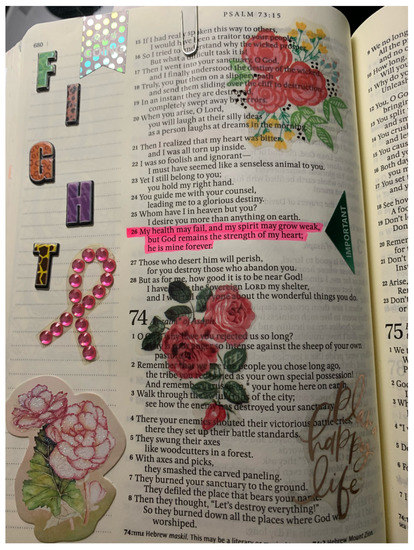 PSALM 73:15
680
FIGHT
15 If I had really spoken this way to others,
I would have been a traitor to your people.
16 So I tried to understand why the wicked prosper.
But what a difficult task it is!
17 Then I went into your sanctuary, O God,
and I finally understood the destiny of the wicked.
18 Truly, you put them on a slippery path
and send them sliding over the cliff to destruction.
19 In an instant they are destroyed,
completely swept away by terrors.
20 When you arise, O Lord,
you will laugh at their silly ideas
as a person laughs at dreams in the morning.
21 Then I realized that my heart was bitter,
and I was all torn up inside.
22 I was so foolish and ignorant—
I must have seemed like a senseless animal to you.
23 Yet I still belong to you;
you hold my right hand.
24 You guide me with your counsel,
leading me to a glorious destiny.
25 Whom have I in heaven but you?
I desire you more than anything on earth.
26 My health may fail, and my spirit may grow weak,
but God remains the strength of my heart;
he is mine forever.
IMPORTANT
27 Those who desert him will perish,
for you destroy those who abandon you.
28 But as for me, how good it is to be near God!
I have made the Sovereign LORD my shelter,
and I will tell everyone about the wonderful things you do.
74
1 O God, why have you rejected us so long?
against the sheep of your own
2 Remember that we are the people you chose long ago,
the tribe you redeemed as your own special possession!
And remember your home here on earth.
3 Walk through the ruins of the city;
see how the enemy has destroyed your sanctuary.
4 There your enemies shouted their victorious battle cries;
there they set up their battle standards.
5 They swung their axes
like woodcutters in a forest.
6 With axes and picks,
they smashed the carved paneling.
7 They burned your sanctuary to the ground.
They defiled the place that bears your name.
8 Then they thought, "Let's destroy everything!"
So they burned down all the places where God was
worshiped.
happy
life
74:TITLE Hebrew maskil. This may be a literary or
75